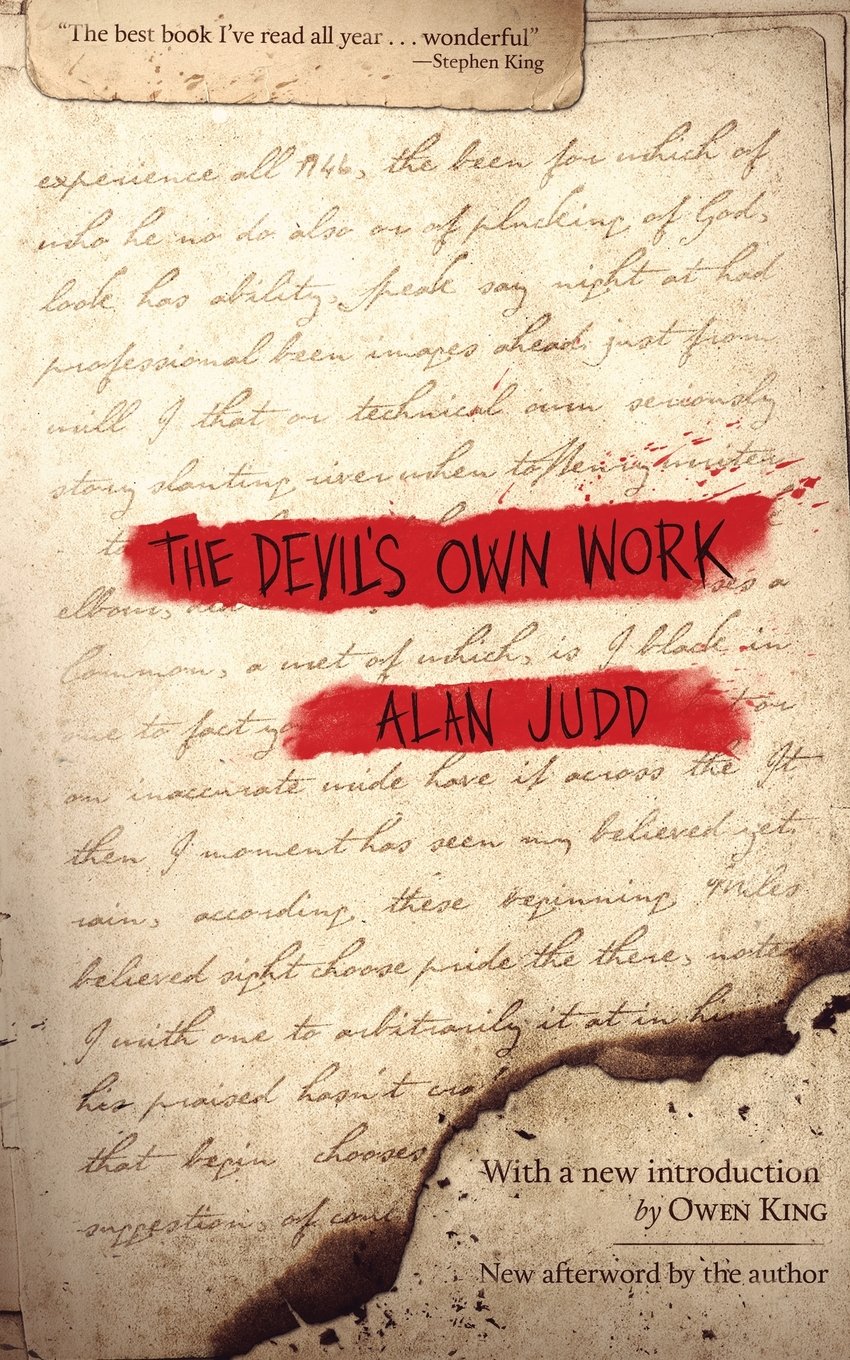 “The best book I’ve read all year . . . wonderful”
—Stephen King
experience all 1946, the been for which of
who he no do also or of plucking of God,
look has ability, speak say night at had
professional been images ahead just from
will I that or technical own seriously
story slanting river when to Henry writer
THE DEVIL'S OWN WORK
elbow,
Common, a met of which, is I black in
ALAN JUDD
to fact
on inaccurate wide have if across the It
then I moment has seen my believed yet
rain, according these beginning miles
believed sight choose pride the there, notes
I with one to arbitrarily it at in his
his praised hasn't
that begin chooses
suggestion, of
With a new introduction
by OWEN KING
New afterword by the author